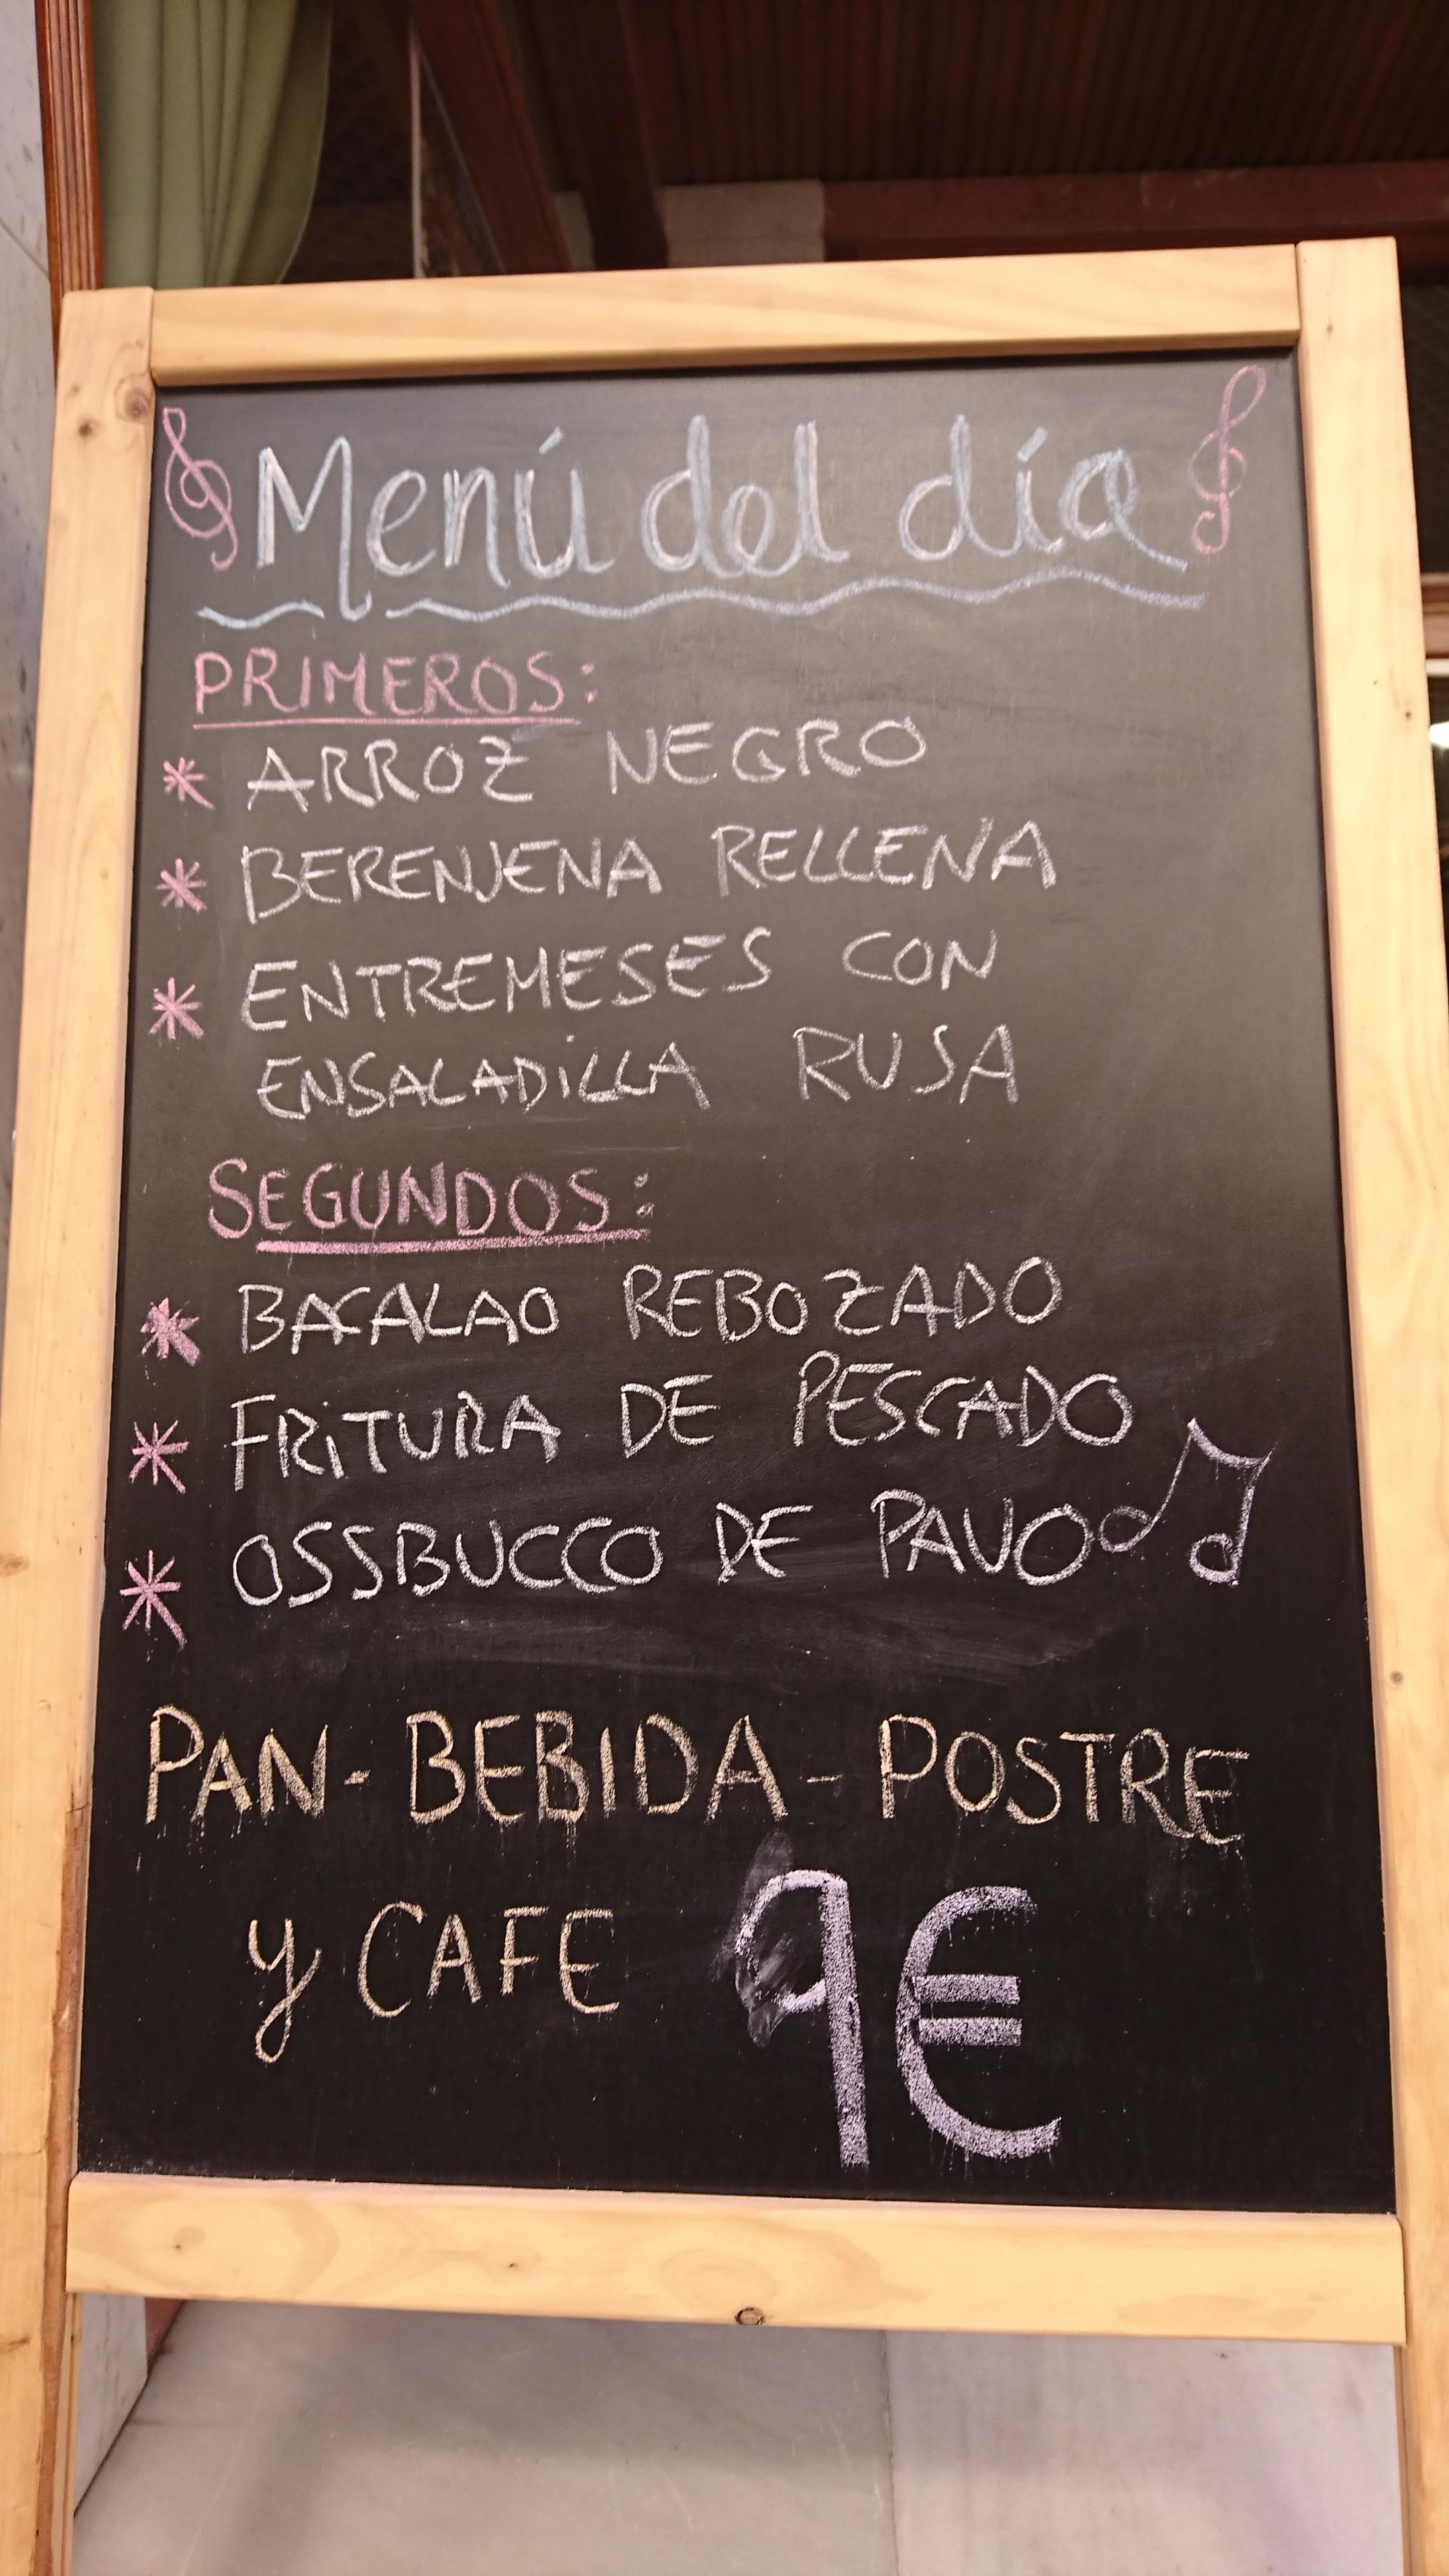 Menú del día
PRIMEROS:
* ARROZ NEGRO
* BERENJENA RELLENA
* ENTREMESES CON
ENSALADiLLA RUSA
SEGUNDOS:
* BACALAO REBOZADO
* FRiTURA DE PESCADO
* OSSBUCCO DE PAVO
PAN - BEBIDA - POSTRE
y CAFE 9€